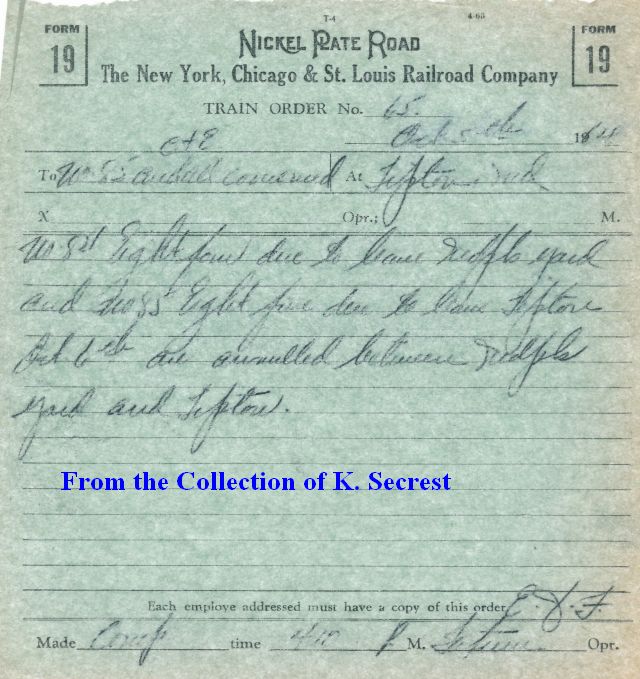 T-4 4-63
FORM 19 NICKEL PLATE ROAD FORM 19
The New York, Chicago & St. Louis Railroad Company
TRAIN ORDER No. 65.
Oct 5th 19
C&E
To No 85 and all concerned At Tipton Ind
X Opr.; M.
No 84 Eight four due to leave Indpls yard
and No 85 Eight five due to leave Tipton
Oct 6th are annulled between Indpls
yard and Tipton.
From the Collection of K. Secrest
Each employe addressed must have a copy of this order
Made Comp time P. M. Opr.